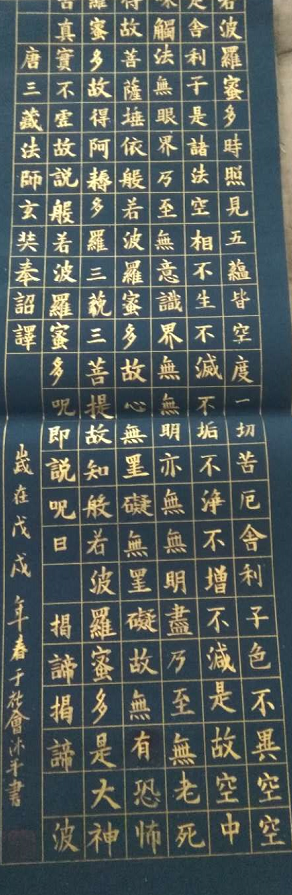 若波羅蜜多時照見五蘊皆空度一切苦厄舍利子色不異空空
是舍利子是諸法空相不生不滅不垢不淨不增不減是故空中
味觸法無眼界乃至無意識界無無明亦無無明盡乃至無老死
得故菩薩埵依般若波羅蜜多故心無罣礙無罣礙故無有恐怖
蜜多故得阿耨多羅三藐三菩提故知般若波羅蜜多是大神
真實不虛故說般若波羅蜜多咒即說咒曰 揭諦揭諦 波
唐三藏法師玄奘奉詔譯
歲在戊戌年春于花會沐手書